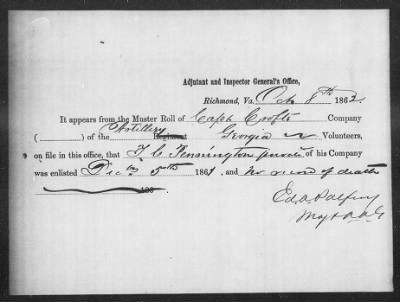 Adjutant and Inspector General's Office,
Richmond, Va. Oct 8th 1862.
It appears from the Muster Roll of Capt Croft's Company
( ) of the Artillery Regiment Georgia Volunteers,
on file in this office, that T. C. Pennington private of his Company
was enlisted Dec 5th 1861, and no record of death
186
Ed. A Palfrey
Maj & A A G